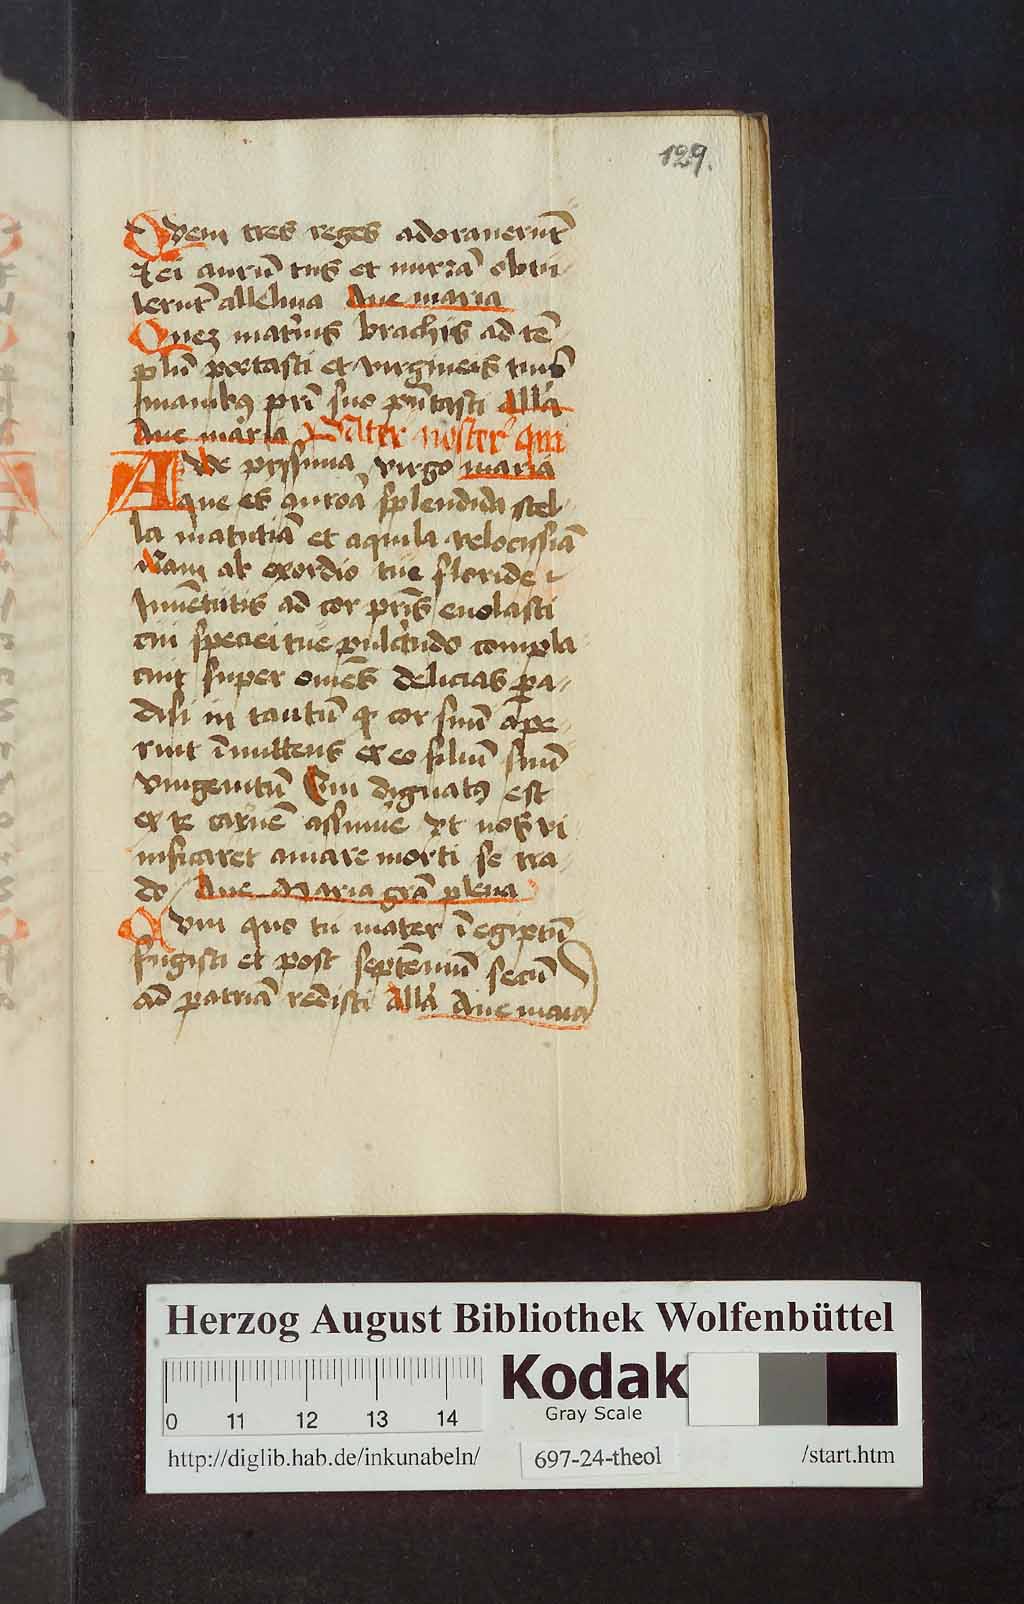 129.
Quem tres reges adorauerūt
et ei aurū tus et mirrā obtu
lerūt alleluia Aue maria
Quez mat'nis brachijs ad tē
plū portasti et virgineis tuis
manibꝰ pri suo pn̄tasti allā
Aue maria Pater noster qui
Aue pijssima virgo maria
que es aurora splendida stel
la matutiā et aquila velocissiā
Nam ab exordio tue floride
Iuuētutis ad cor pris euolasti
cui speciei tue pulcritudo compla
cuit super om̄es delicias pa
disi in tantū qꝫ cor suū ape
ruit īmittens ex eo filiū suū
vnigenitū Qui dignatꝰ est
ex te carnē assumere vt nos vi
uificaret amare morti se tra
do Aue Maria grā plena
Quū quo tu mater ī egiptū
fugisti et post septēniū secū
ad patriā redisti allā Aue maia
Herzog August Bibliothek Wolfenbüttel
Kodak
Gray Scale
0 11 12 13 14
http://diglib.hab.de/inkunabeln/ 697-24-theol /start.htm